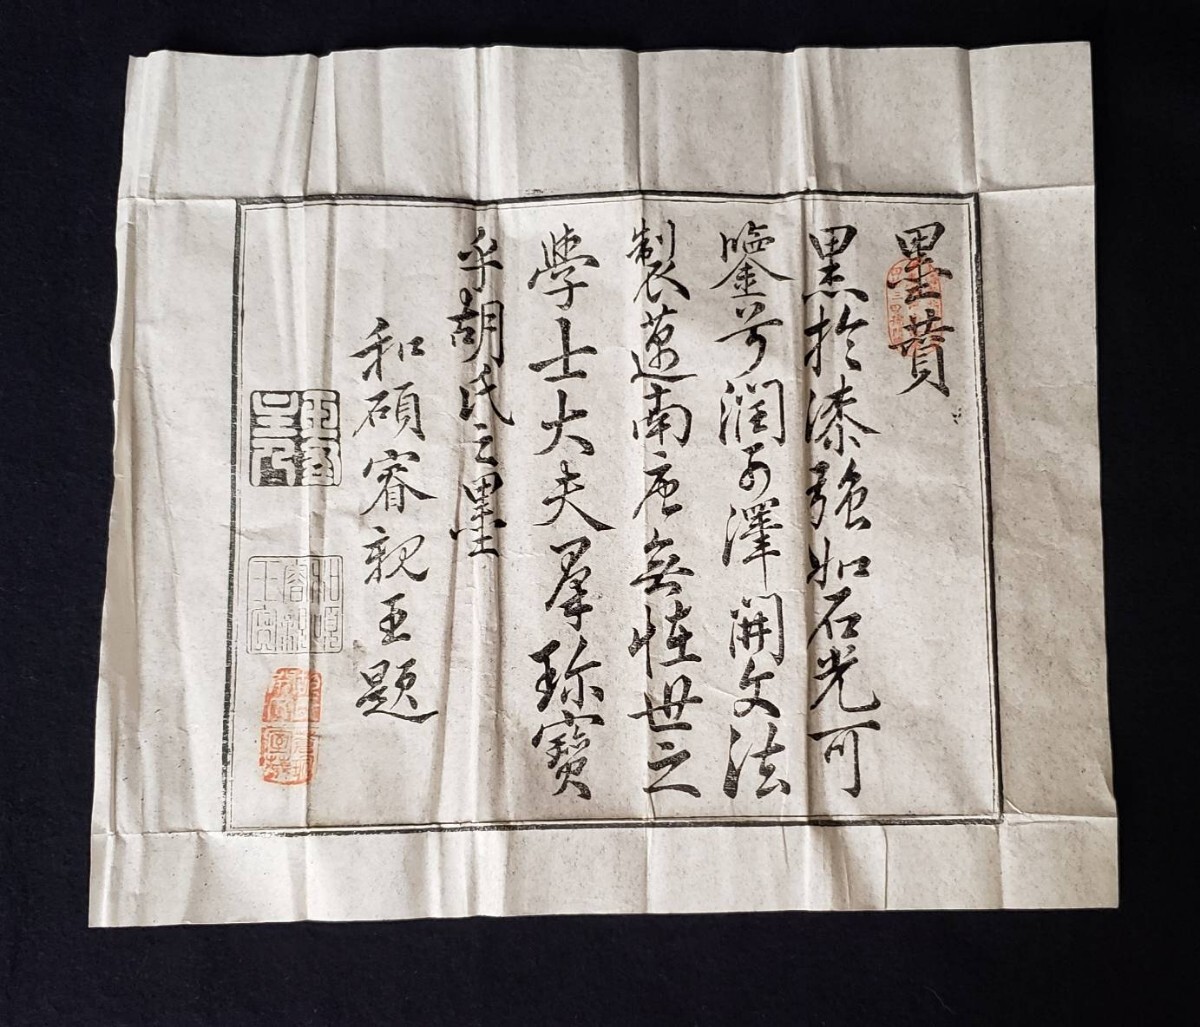 墨贊
黒於漆強如石光可
鑒兮潤而澤開文法
製邁南唐無怪世之
學士大夫羣珍寶
乎胡氏之墨
和碩睿親王題